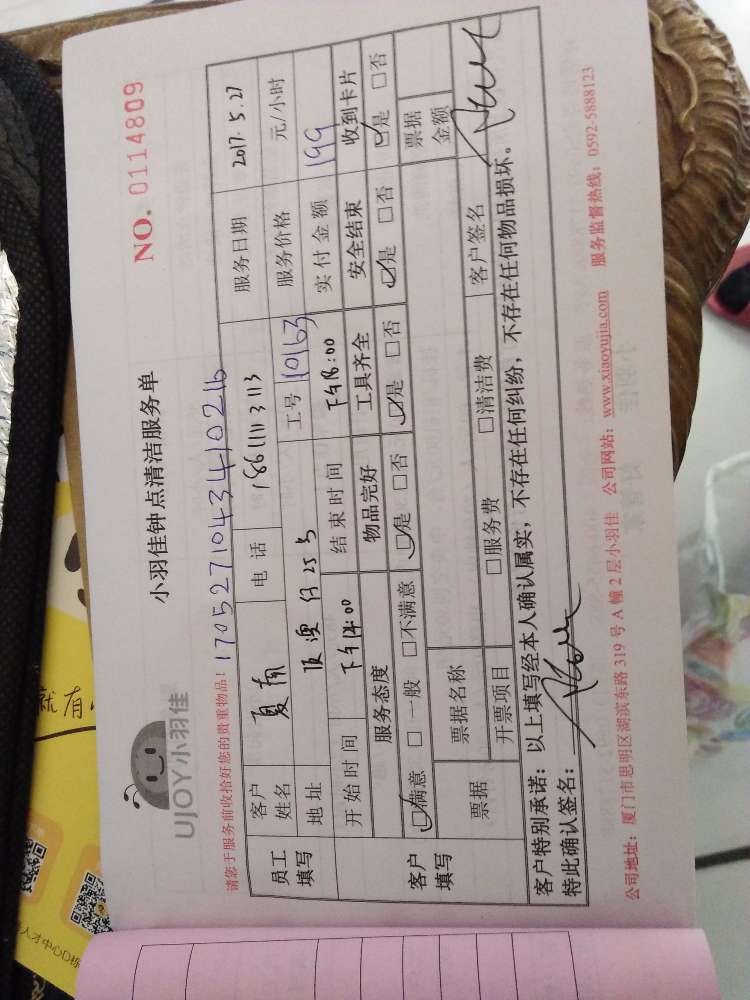 UJOY小羽佳
小羽佳钟点清洁服务单
NO. 0114809
请您于服务前收拾好您的贵重物品！170527104341021b
员工填写
客户姓名 夏南 电话 18611113113 服务日期 2017.5.27
地址 25号 工号 10163 服务价格 元/小时
开始时间 下午14:00 结束时间 下午18:00 实付金额 199
客户填写
服务态度 物品完好 工具齐全 安全结束 收到卡片
☑满意 □一般 □不满意 ☑是 □否 ☑是 □否 ☑是 □否 ☑是 □否
票据 票据名称 票据金额
开票项目 □服务费 □清洁费 客户签名
客户特别承诺：以上填写经本人确认属实，不存在任何纠纷，不存在任何物品损坏。
特此确认签名：
公司地址：厦门市思明区湖滨东路319号A幢2层小羽佳 公司网站：www.xiaoyujia.com 服务监督热线：0592-5888123
就有
人才中心D栋